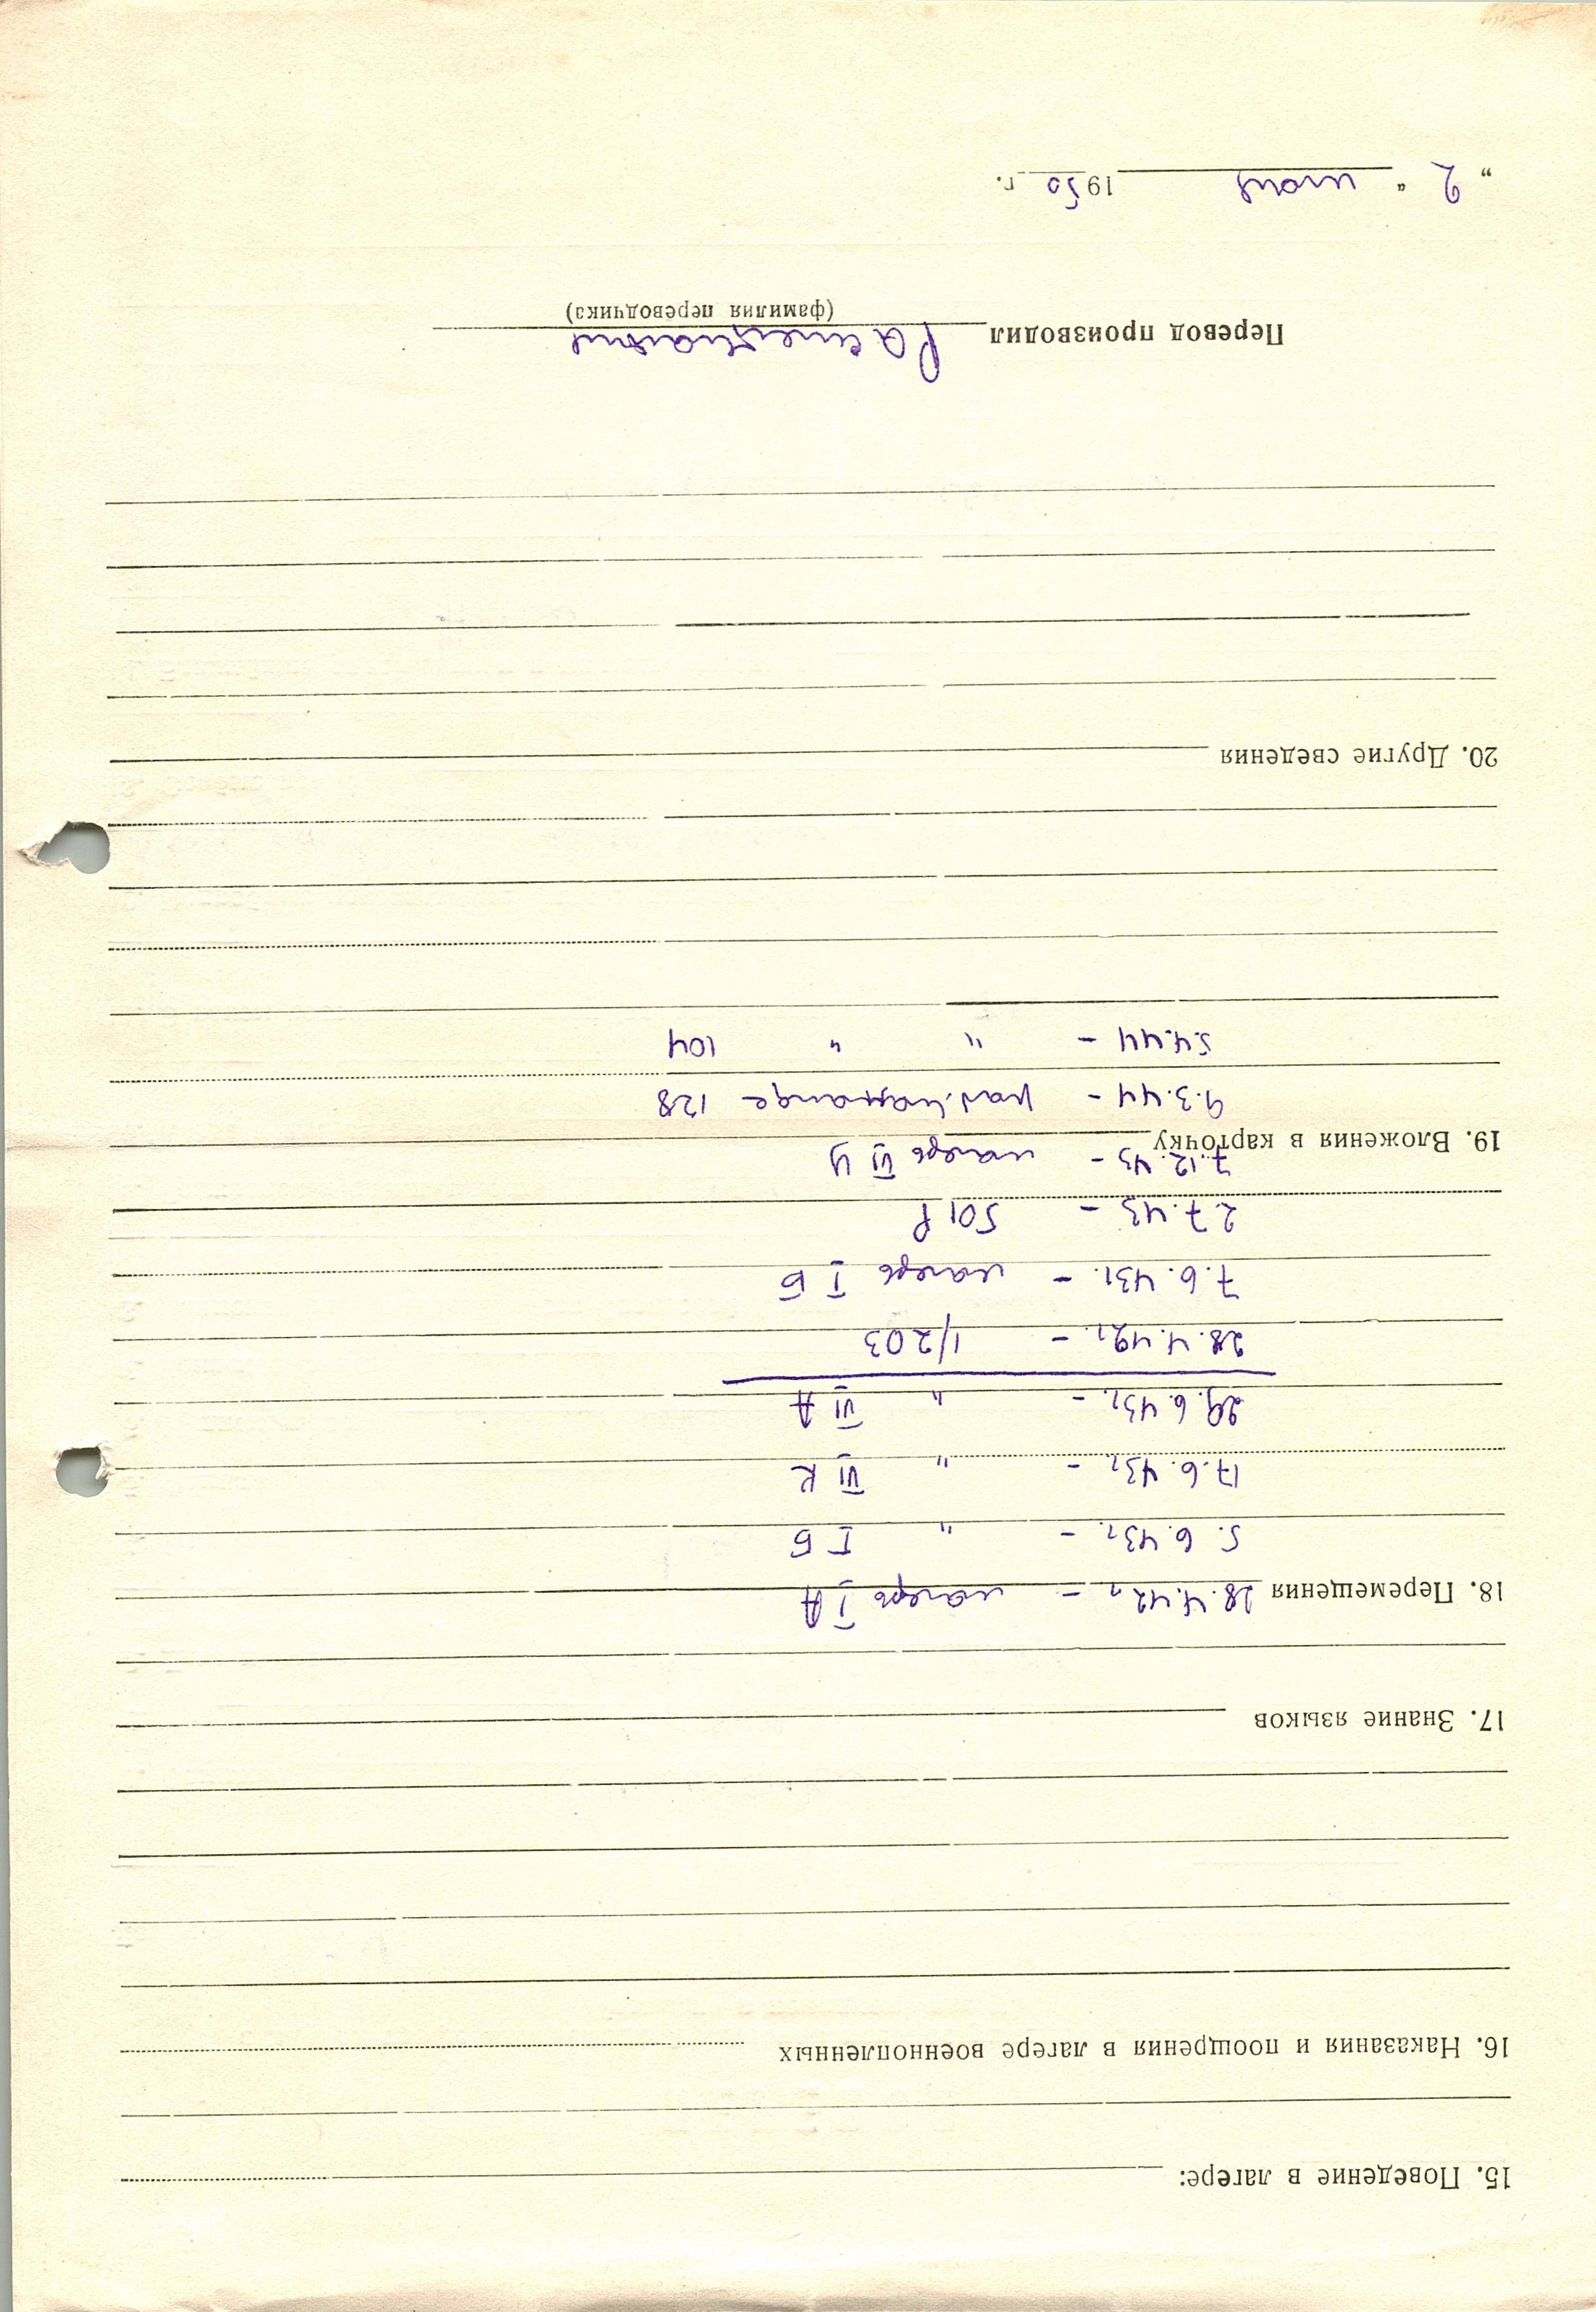 15. Поведение в лагере:
16. Наказания и поощрения в лагере военнопленных
17. Знание языков
18. Перемещения 28.4.42г. – лагерь I А
5.6.43г. – " I Б
17.6.43г. – " VI К
29.6.43г. – " VI А
28.4.42г. – 1/203
7.6.43г. – лагерь I Б
2.7.43 – 501 Р
7.12.43 – лагерь VI
19. Вложения в карточку
9.3.44 – раб. команде 128
5.4.44 – " " 104
20. Другие сведения
Перевод производил
(фамилия переводчика)
„ 2 “ 1950 г.